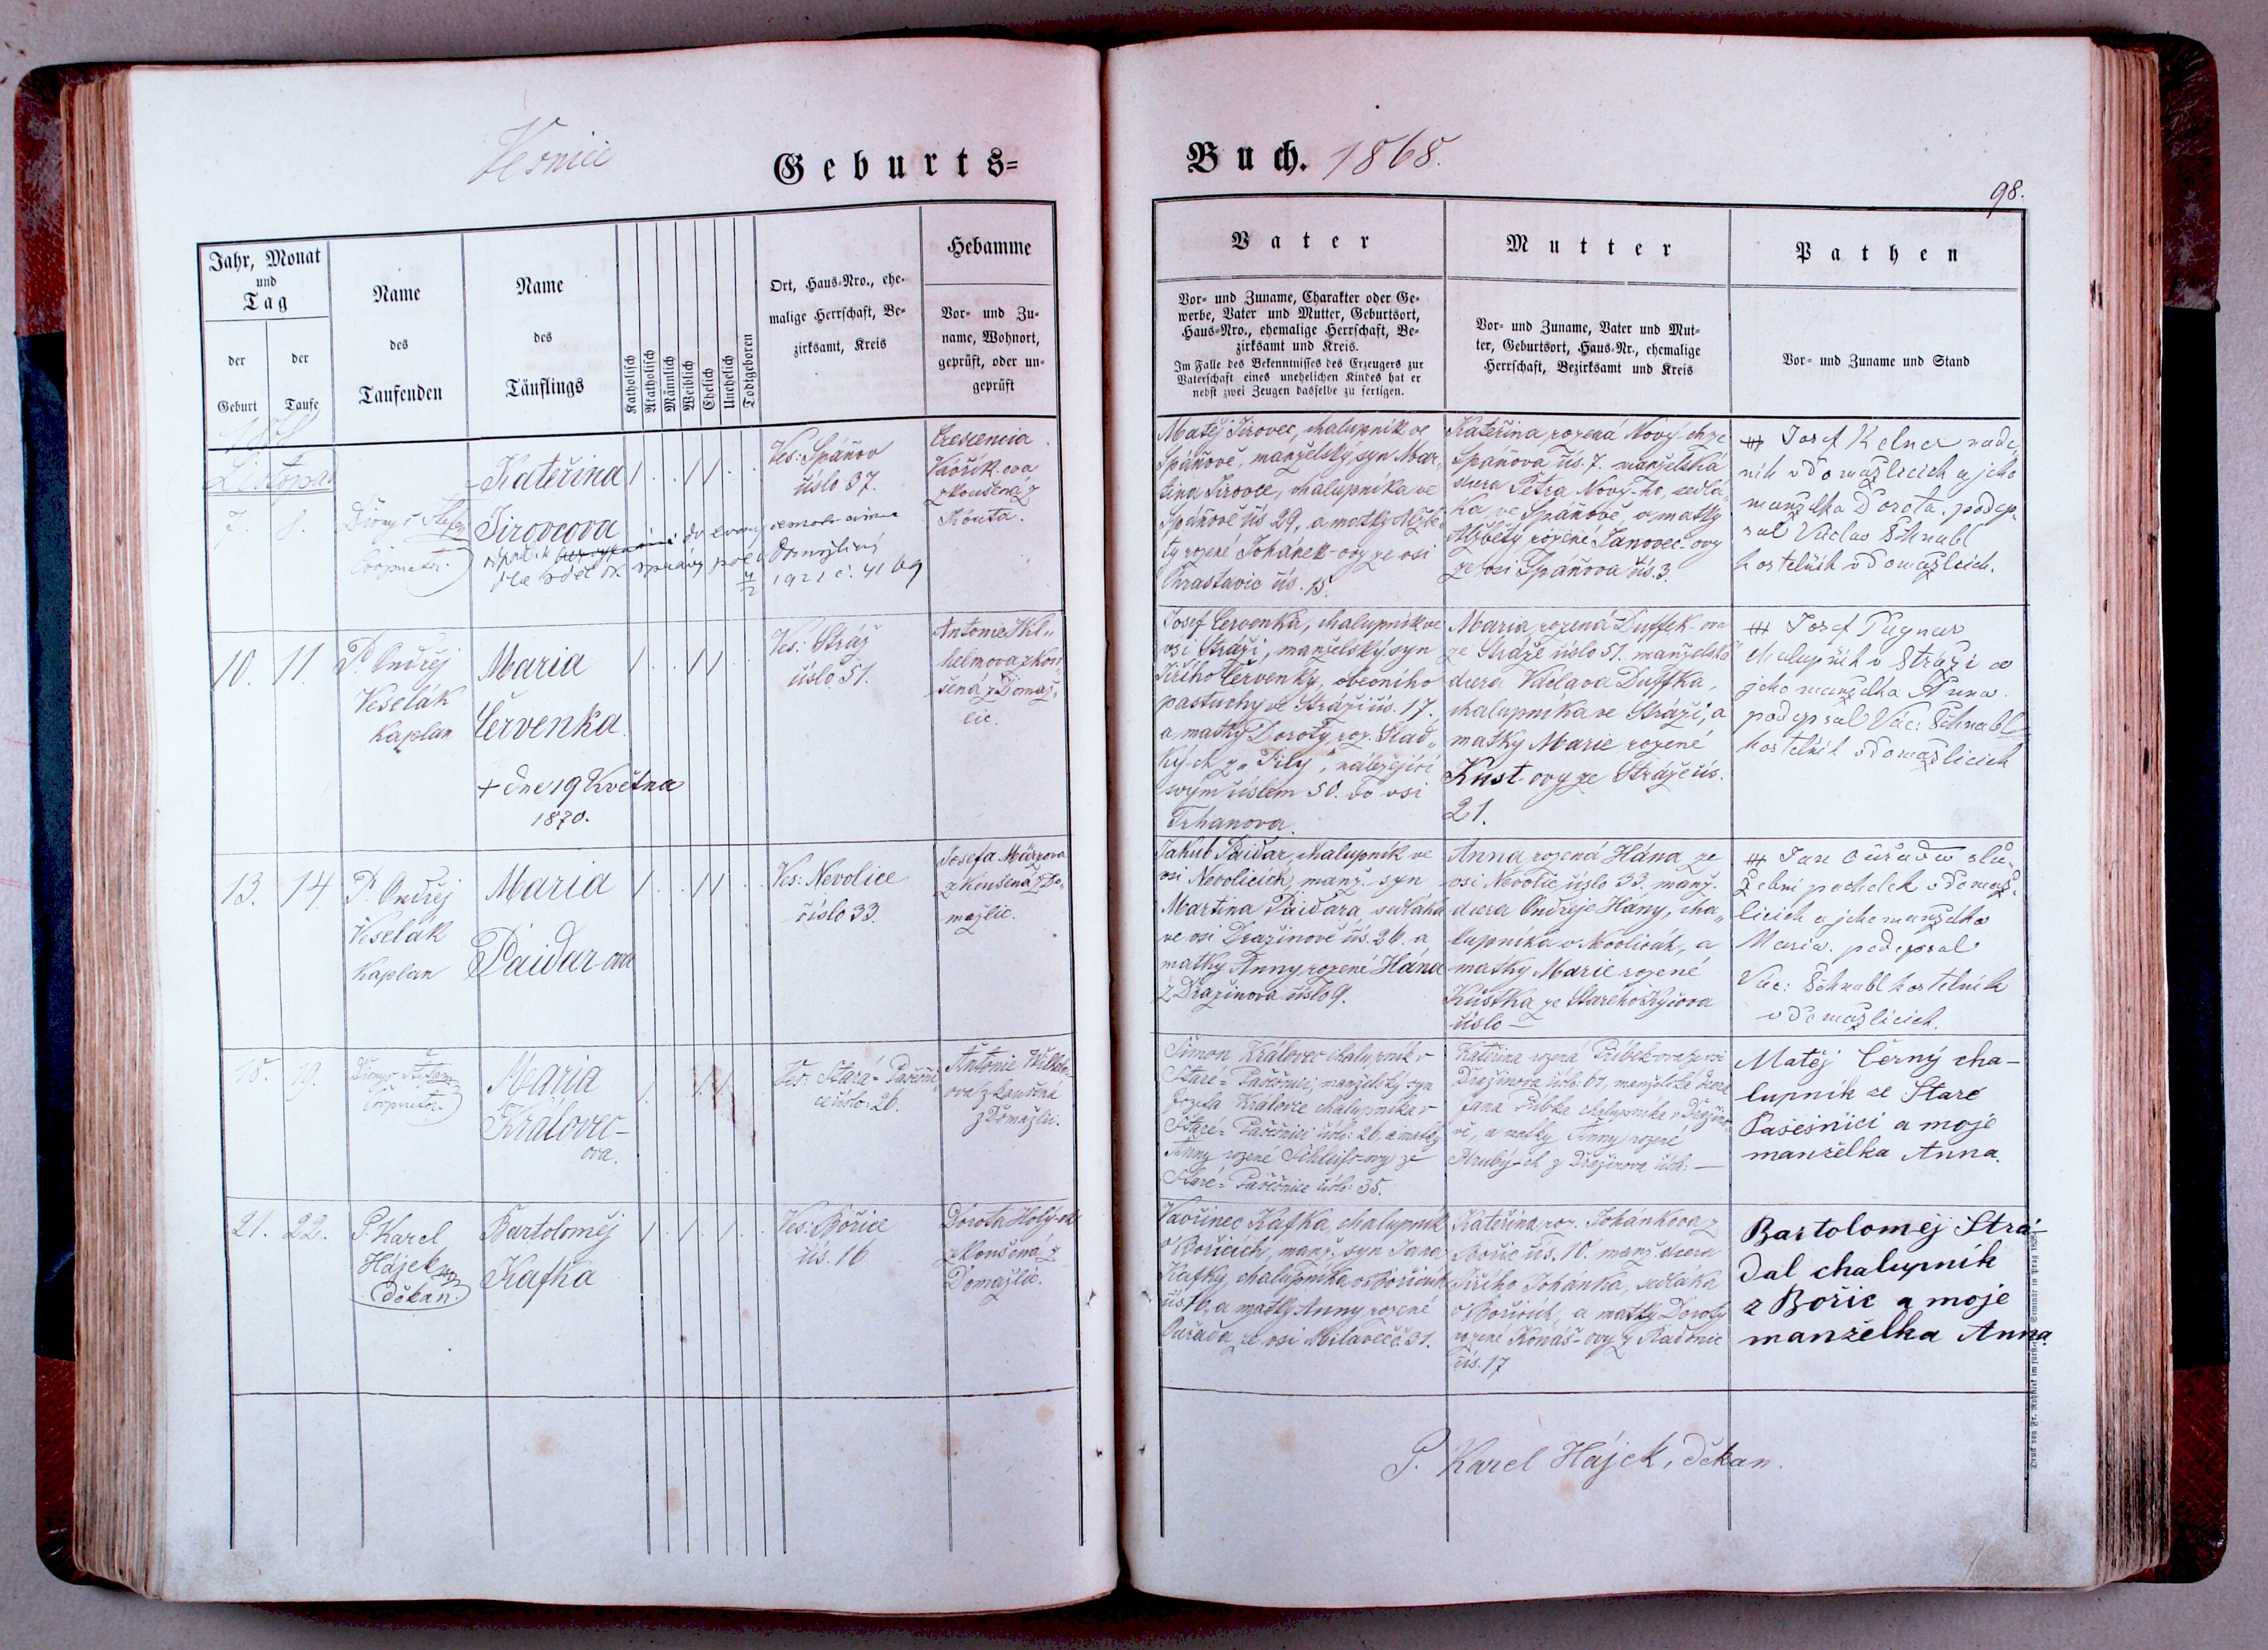 Geburts=
Buch. 1868.
98.
Jahr, Monat
und
Tag
der
Geburt
der
Taufe
Name
des
Taufenden
Name
des
Täuflings
Katholisch
Akatholisch
Männlich
Weiblich
Ehelich
Unehelich
Todtgeboren
Ort, Haus-Nro., ehe-
malige Herrschaft, Be-
zirksamt, Kreis
Hebamme
Vor- und Zu-
name, Wohnort,
geprüft, oder un-
geprüft
Vater
Vor- und Zuname, Charakter oder Ge-
werbe, Vater und Mutter, Geburtsort,
Haus-Nro., ehemalige Herrschaft, Be-
zirksamt und Kreis.
Im Falle des Bekenntnisses des Erzeugers zur
Vaterschaft eines unehelichen Kindes hat er
nebst zwei Zeugen dasselbe zu fertigen.
Mutter
Vor- und Zuname, Vater und Mut-
ter, Geburtsort, Haus-Nr., ehemalige
Herrschaft, Bezirksamt und Kreis
Pathen
Vor- und Zuname und Stand
Listopad
7. 8.
Cooperator.
Kateřina
Jirovcova
1921 č. 41
Ves: Spáňov
číslo 37.
Crescencia
zkoušená z
Kouta.
Matěj Jirovec, chalupník ve
Spáňově, manželský syn Mar„
tina Jirovce, chalupníka ve
Spáňově čís 29, a matky Alžbě„
ty rozené Johánek-ovy ze vsi
Chrastavic čís. 15.
Kateřina rozená Nový-ch ze
Spáňova čís. 7. manželská
dcera Petra Nový-ho, sedlá„
ka ve Spáňově, a matky
Alžběty rozené Janovec-ovy
ze vsi Spáňova čís. 3.
+++ Josef Kelner
nik v Domažlicích a jeho
manželka Dorota. podep„
sal Václav Schnabl
kostelník v Domažlicích.
10. 11.
P. Ondřej
Veselák
Kaplan
Maria
Červenka
+ dne 19 Května
1870.
Ves: Stráž
číslo 51.
Antonie Wil„
helmova zkou
šená z Domaž„
lic.
Josef Červenka, chalupník ve
vsi Stráži, manželský syn
Jiřího Červenky, obecního
pastuchy ve Stráži čís. 17.
a matky Doroty roz. Slad„
ký-ch z „Pily", náležející
svým číslem 50. do vsi
Trhanova.
Maria rozená Duffek-ova
ze Stráže číslo 51. manželská
dcera Václava Duffka,
chalupníka ve Stráži, a
matky Marie rozené
Kust-ovy ze Stráže čís.
21.
+++ Josef Pugner
chalupník v Stráži a
jeho manželka Anna.
podepsal Vác: Schnabl
kostelník v Domažlicích
13. 14.
P. Ondřej
Veselák
Kaplan
Maria
Paidar-ova
Ves: Nevolice
číslo 33.
Josefa Mürzova
zkoušená z Do„
mažlic.
Jakub Paidar, chalupník ve
vsi Nevolicích, manž. syn
Martina Paidara, sedláka
ve vsi Dražinově čís. 26. a
matky Anny rozené Hána
z Dražinova číslo 9.
Anna rozená Hána ze
vsi Nevolic číslo 33. manž.
dcera Ondřeje Hány, cha„
lupníka v Nevolicích, a
matky Marie rozené
Kustka ze Starého Kyčova
číslo —
+++ Jan Cuřada slu„
žebni pacholek v Domaž„
licich a jeho manželka
Maria. podepsal
Vác: Schnabl kostelník
v Domažlicích.
18. 19.
Cooperator.
Maria
Královec-
ova.
Ves: Stará=Pasečni
ce číslo: 26.
Antonie Wilhelm-
ova zkoušená
z Domažlic.
Šimon Královec chalupník v
Staré=Pasečnici, manželský syn
Jozefa Královce chalupníka v
Staré=Pasečnici číslo: 26. a matky
Anny rozené Schleiss-ovy ze
Staré=Pasečnice číslo: 35.
Kateřina rozená Přibek-ova ze vsi
Dražinova číslo: 61, manželská dcera
Jana Přibka chalupníka v Dražino
vě, a matky Anny rozené
Hrubý-ch z Dražinova číslo: —
Matěj Černý cha-
lupník ze Staré
Pasečnici a moje
manželka Anna.
21. 22.
P. Karel
Hájek
děkan.
Bartoloměj
Kafka
Ves: Bořice
čís. 16
Dorota Holý-ch
zkoušená z
Domažlic.
Vavřinec Kafka, chalupník
v Bořicích, manž. syn Jana
Kafky, chalupníka v Bořicích
čís 16. a matky Anny rozené
Cuřada ze vsi Milaveč č. 31.
Kateřina roz. Johánkova z
Bořic čís. 10. manž. dcera
Jiřího Johánka, sedláka
v Bořicích, a matky Doroty
rozené Konáš-ovy z Radonic
čís. 17
Bartoloměj Strá-
dal chalupník
z Bořic a moje
manželka Anna
P. Karel Hájek, děkan.